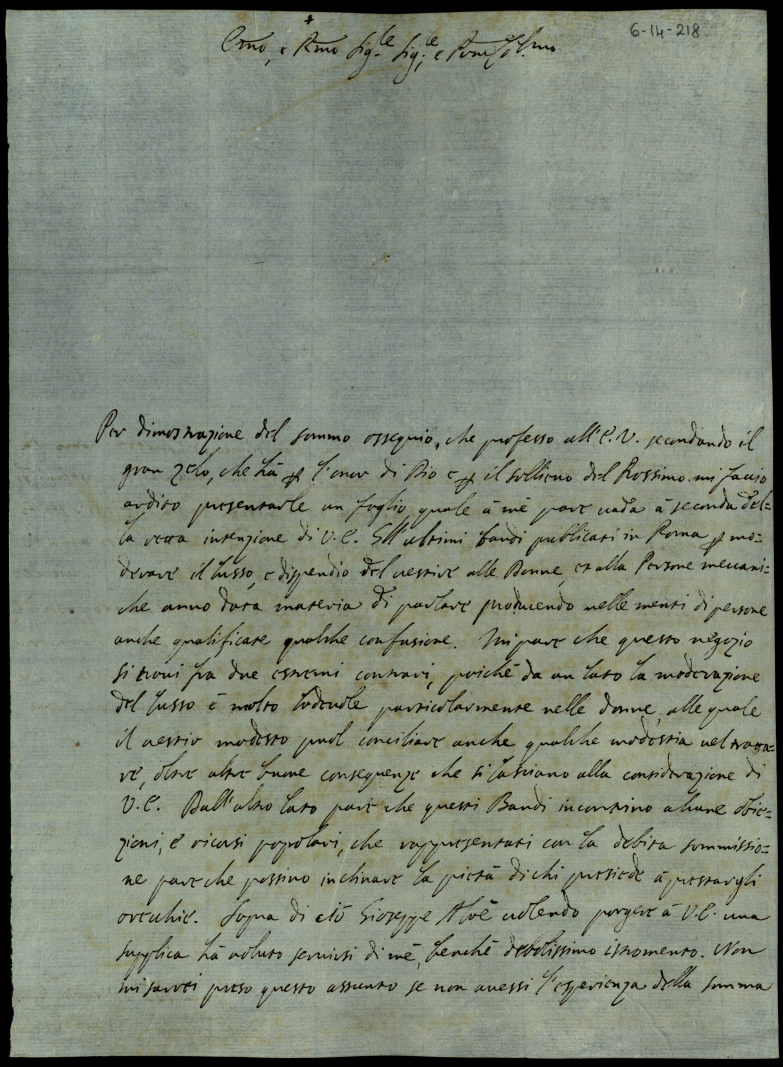 6-14-218
Emo, e Rmo Sig.re Sig.re e Prone Col.mo
Per dimostrazione del sommo ossequio, che professo all'E.V. secondando il
gran zelo, che hà p l'onor di Dio e p il sollieuo del Prossimo mi faccio
ardito presentarle un foglio quale à mè pare uada à seconda del=
la retta intenzione di V.E. Gl'ultimi bandi publicati in Roma p mo=
derare il lusso, e dispendio del uestire alle Donne, et alla Persone meccani=
che anno data materia di parlare producendo nelle menti di persone
anche qualificate qualche confusione. Mi pare che questo negozio
si troui fra due estremi contrari, poiché da un lato la moderazione
del lusso è molto lodeuole particolarmente nelle donne, alle quale
il uestir modesto puol conciliare anche qualche modestia nel tratta=
re, oltre altre buone conseguenze che si lasciano alla considerazione di
V.E. Dall'altro lato pare che questi Bandi incontrino alcune obie=
zioni, e ricorsi popolari, che rappresentati con la debita sommissio=
ne pare che possino inclinare la pietà di chi presiede à prestargli
orecchie. Sopra di ciò Gioseppe Aloè uolendo porgere à V.E. una
supplica hà uoluto seruirsi di mè, benchè debolissimo istromento. Non
mi sarei preso questo assunto se non auessi l'esperienza della somma